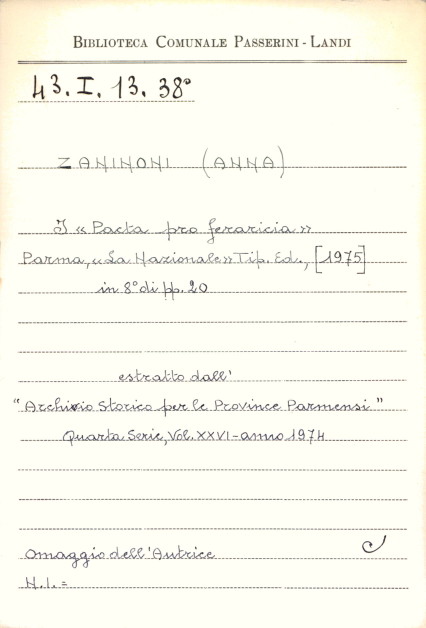 BIBLIOTECA COMUNALE PASSERINI - LANDI
43. I. 13. 38°
ZANINONI (ANNA)
I « Pacta pro feraricia »
Parma, « La Nazionale » Tip. Ed., [1975]
in 8° di pp. 20
estratto dall'
"Archivio Storico per le Province Parmensi"
Quarta Serie, Vol. XXVI - anno 1974
Omaggio dell'Autrice
N.I. =